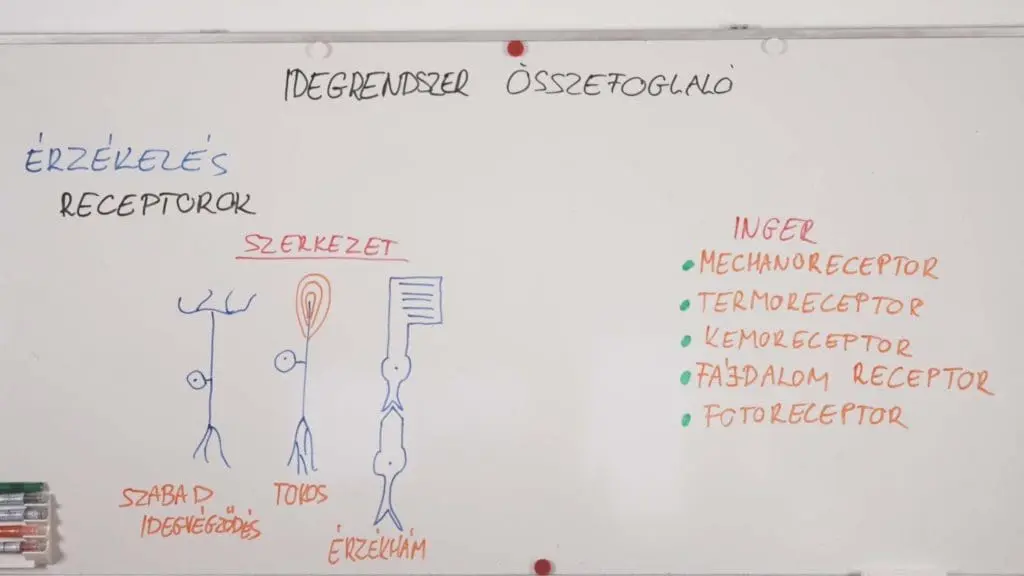 IDEGRENDSZER ÖSSZEFOGLALÓ
ÉRZÉKELÉS
RECEPTOROK
SZERKEZET
SZABAD
IDEGVÉGZŐDÉS
TOKOS
ÉRZÉKHÁM
INGER
• MECHANORECEPTOR
• TERMORECEPTOR
• KEMORECEPTOR
• FÁJDALOM RECEPTOR
• FOTORECEPTOR